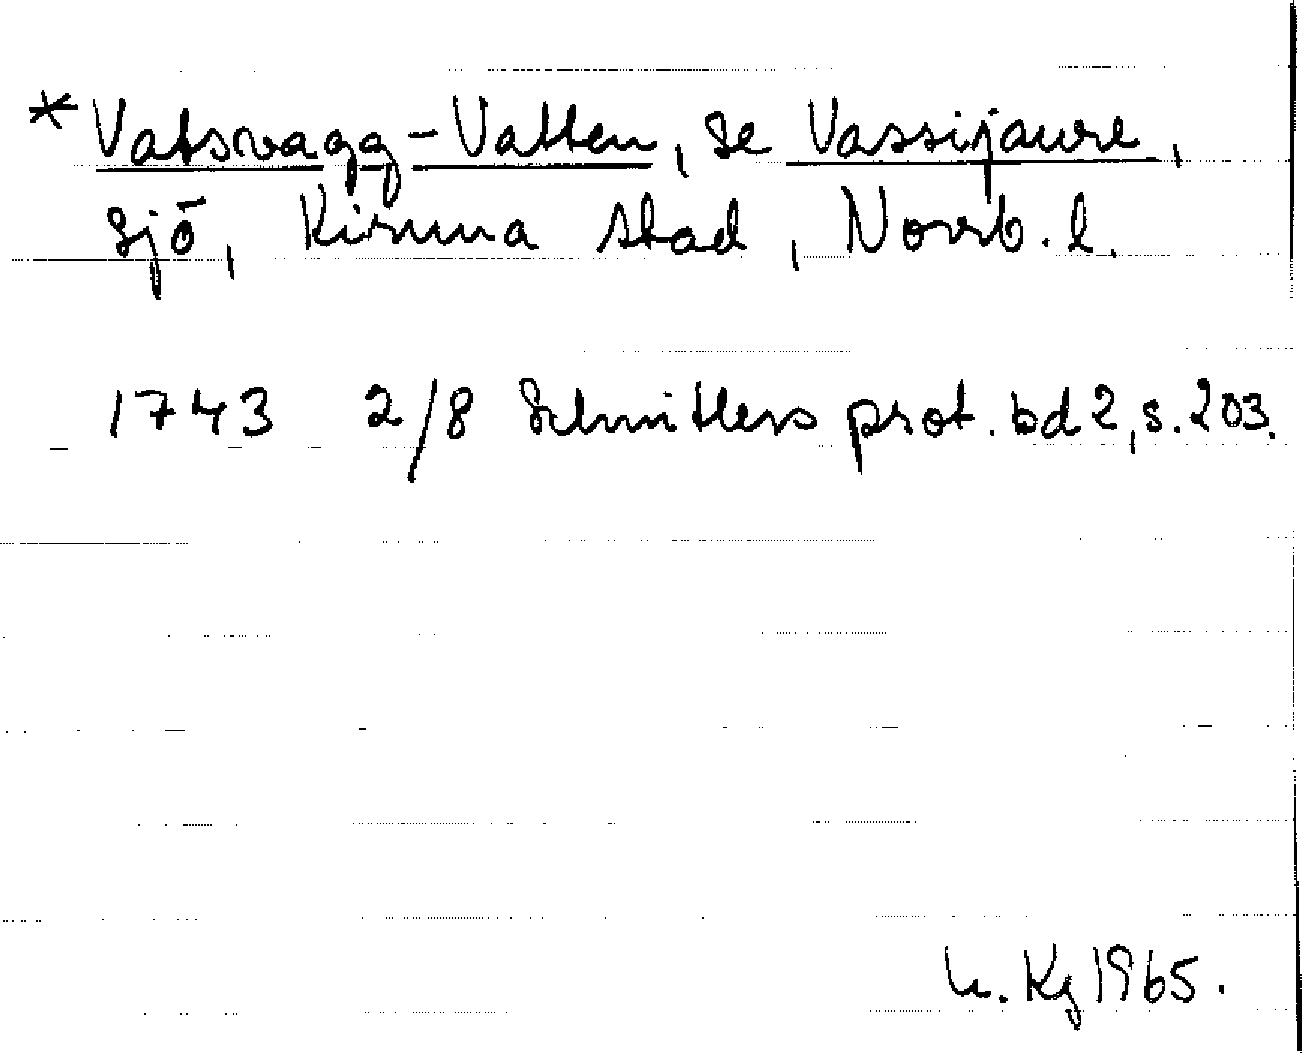 * Vatsvagg-Vatten, se Vassijaure,
sjö, Kiruna stad, Norrb. l.
1743 2/8 Schnitlers prot. bd 2, s. 203.
Kg 1965.